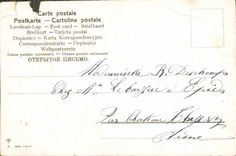 Carte postale
Postkarte - Cartolina postale
Levelező-Lap - Post card - Briefkaart
Brefkort - Tarjeta postal
Dopisnice - Karta Korespondencyjna
Correspondenzkarte - Dopisnica
Weltpostverein
Union postale universelle - Unione postale universale
ОТКРЫТОЕ ПИСЬМО.
Mademoiselle B. Deschamps
Chez Mr
Par Château Thierry
Aisne